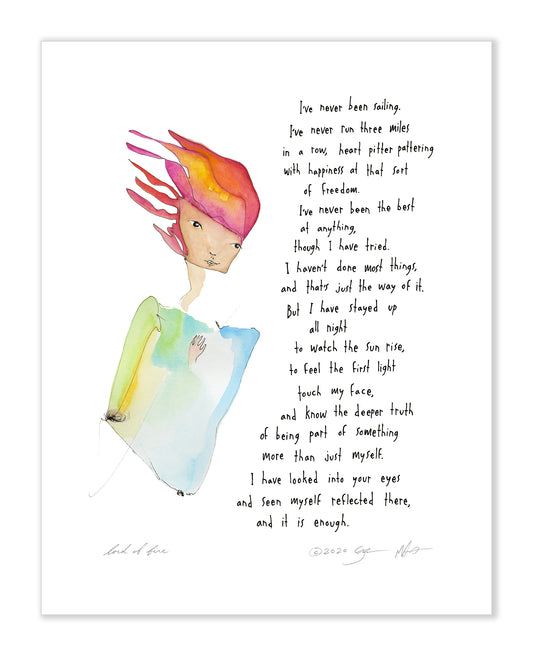 I've never been sailing.
I've never run three miles
in a row, heart pitter pattering
with happiness at that sort
of freedom.
I've never been the best
at anything,
though I have tried.
I haven't done most things,
and that's just the way of it.
But I have stayed up
all night
to watch the sun rise,
to feel the first light
touch my face,
and know the deeper truth
of being part of something
more than just myself.
I have looked into your eyes
and seen myself reflected there,
and it is enough.
©2020